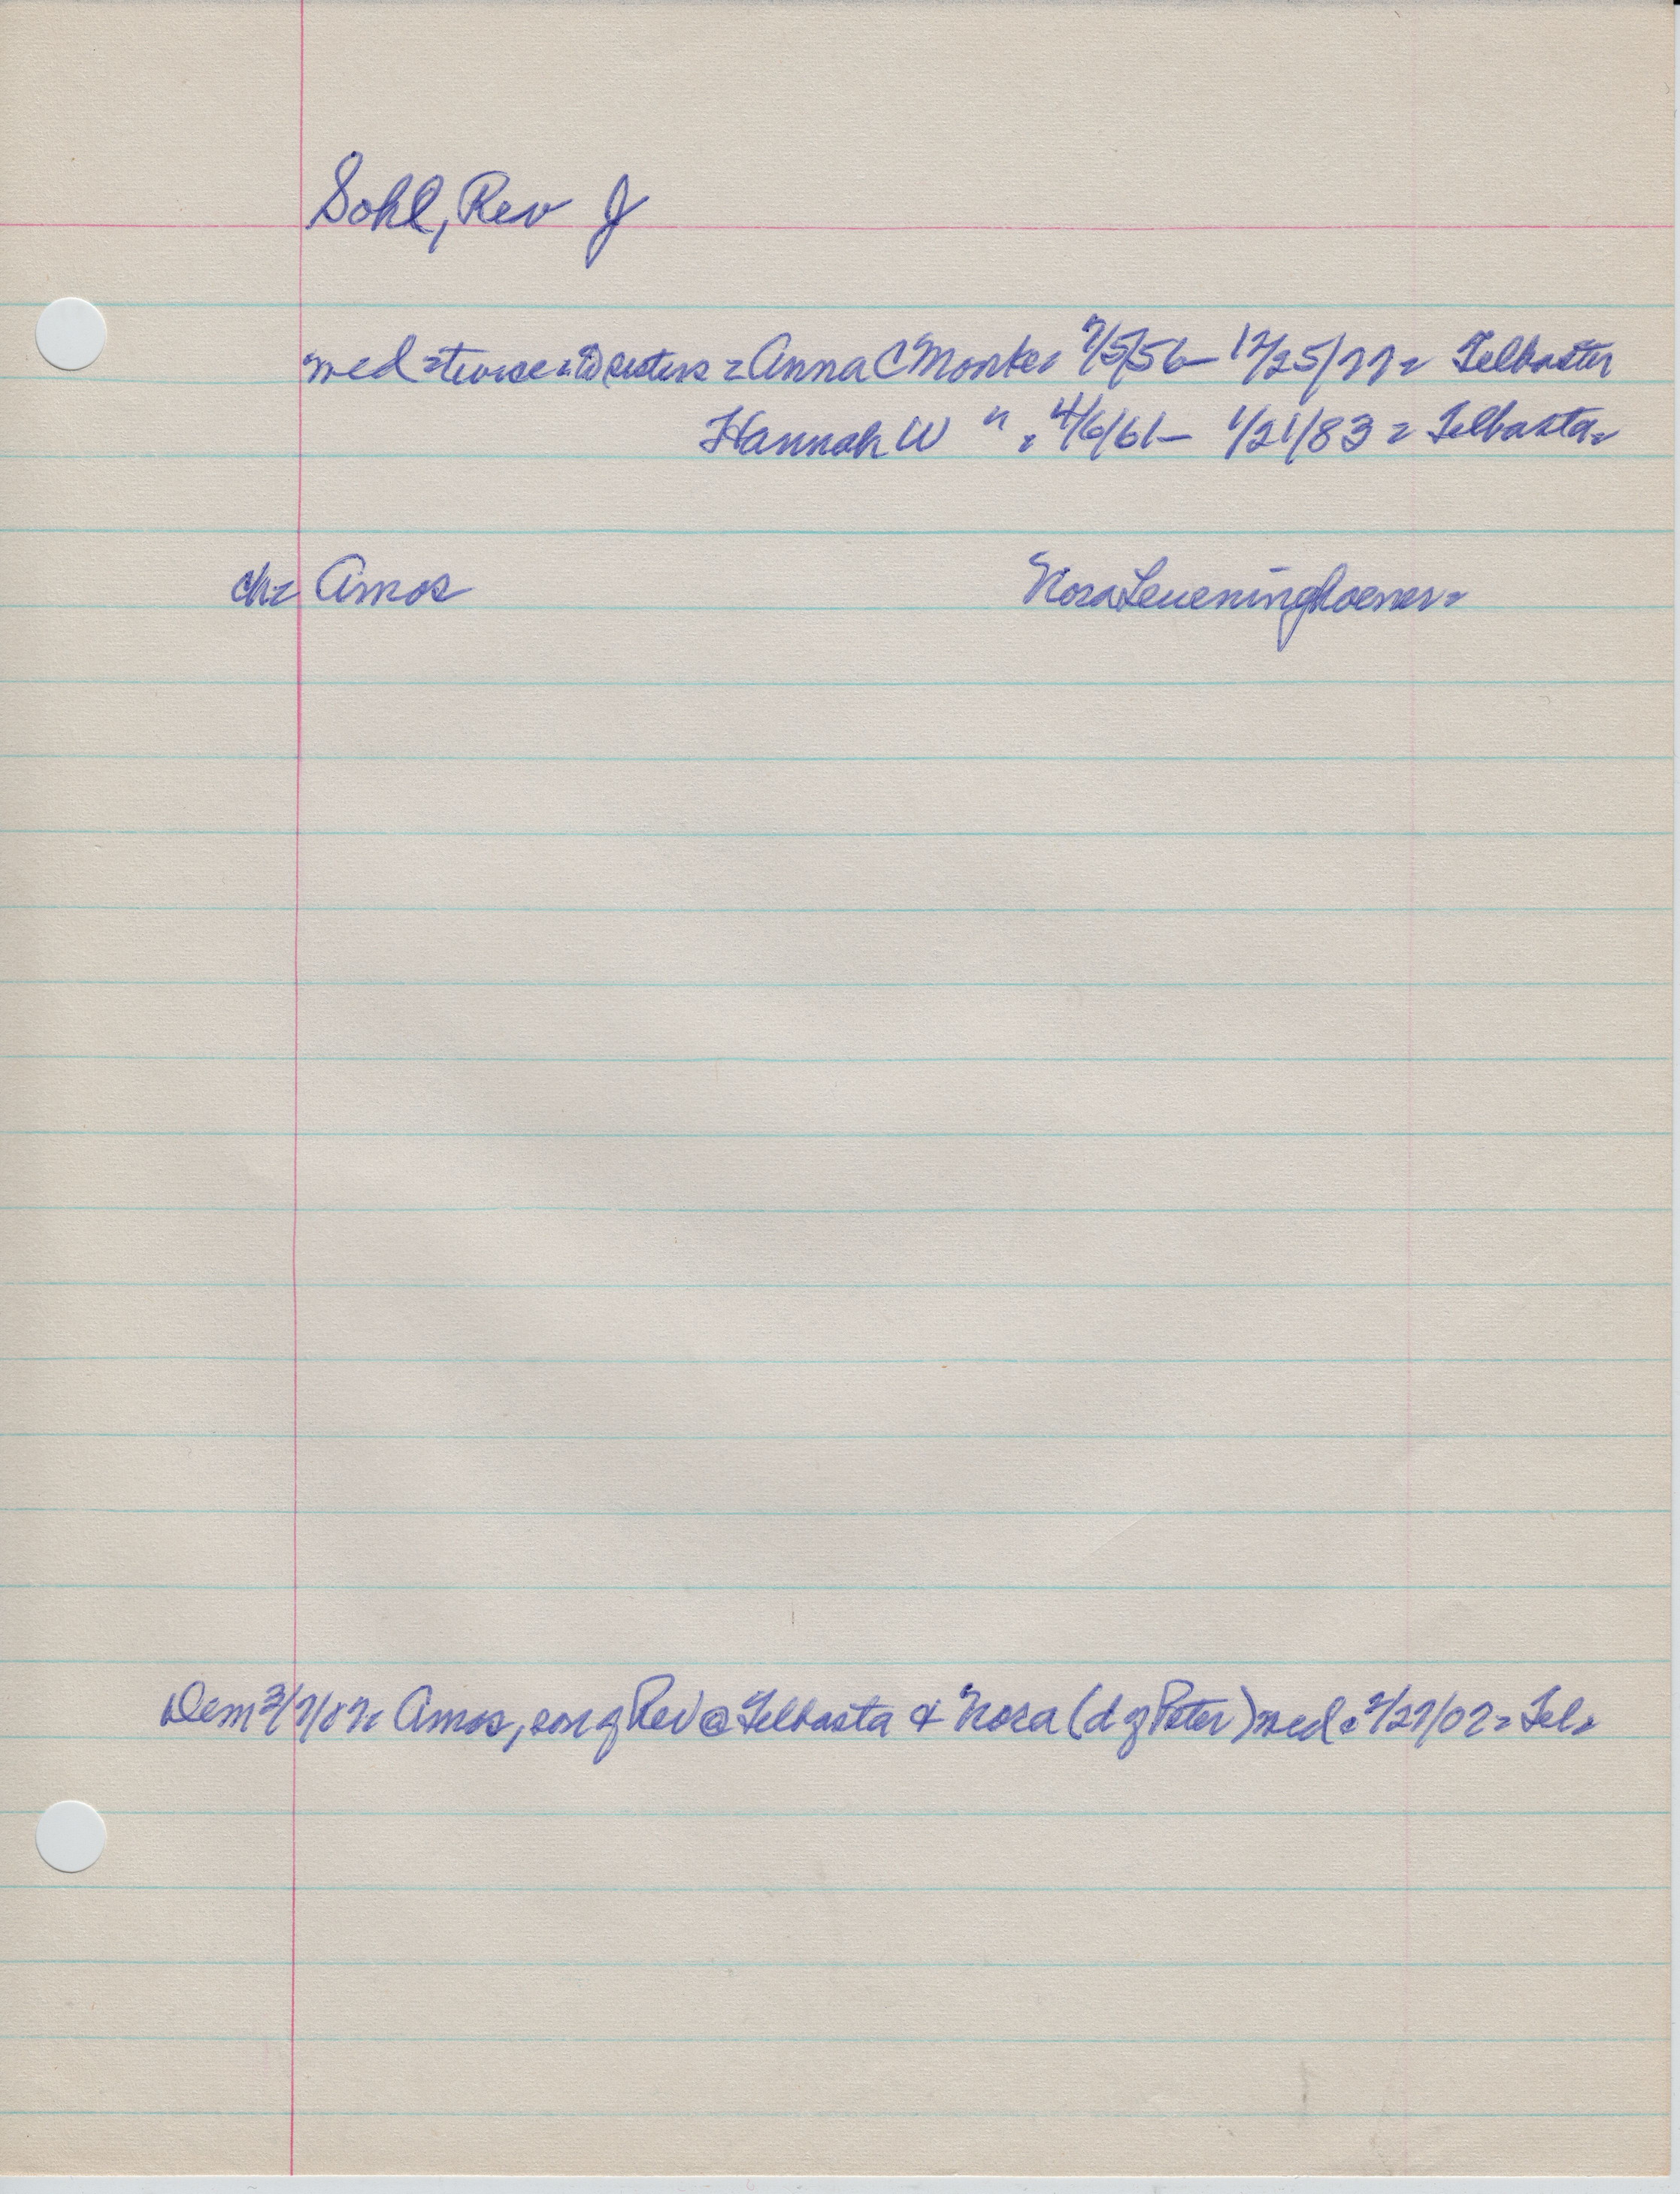 Sohl, Rev J
med = twice = to sisters = Anna C Monke = 7/5/56 – 12/25/77 = Telbasta =
Hannah W " = 4/6/61 – 1/21/83 = Telbasta =
ch = Amos Nora Leueninghoener =
Dem 3/7/02 = Amos, son of Rev @ Telbasta & Nora (d of Peter) med = 2/27/02 = Tel =